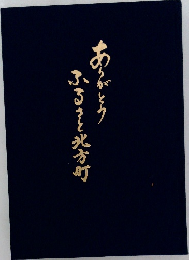 ありがとう
ふるさと北方町